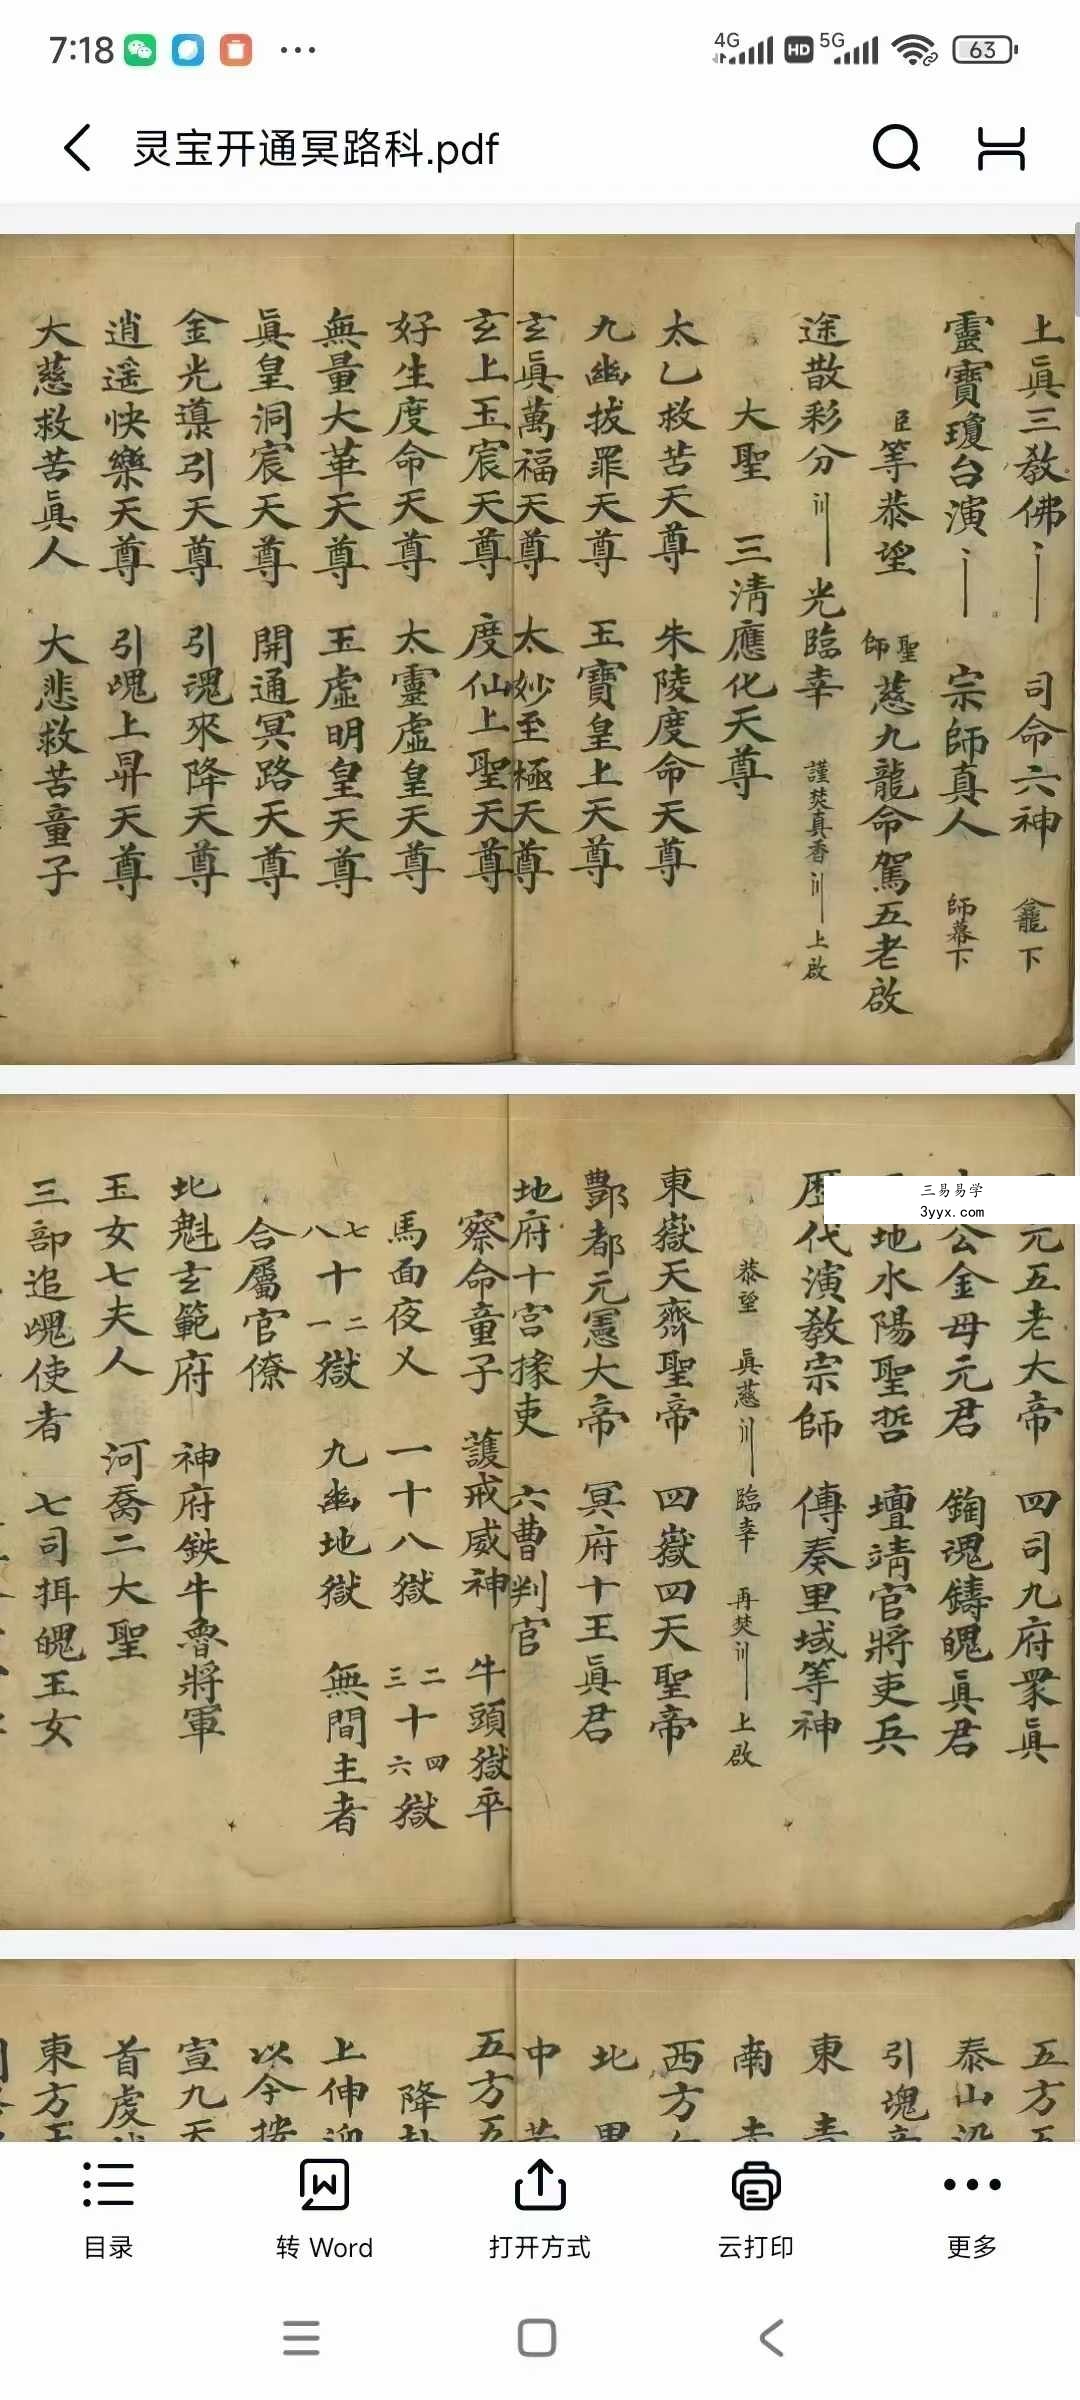 7:18
4G HD 5G 63
灵宝开通冥路科.pdf
上眞三教佛 司命六神 龕下
靈寶瓊台演 宗師真人 師幕下
臣等恭望 聖師慈九龍命駕五老啟
途散彩分 光臨幸 謹焚真香 上啟
大聖 三淸應化天尊
太乙救苦天尊 朱陵度命天尊
九幽拔罪天尊 玉寶皇上天尊
玄眞萬福天尊 太妙至極天尊
玄上玉宸天尊 度仙上聖天尊
好生度命天尊 太靈虛皇天尊
無量大華天尊 玉虛明皇天尊
眞皇洞宸天尊 開通冥路天尊
金光導引天尊 引魂來降天尊
逍遥快樂天尊 引魂上昇天尊
大慈救苦眞人 大悲救苦童子
三易易学
3yyx.com
元五老大帝 四司九府衆眞
公金母元君 鍧魂鑄魄眞君
地水陽聖哲 壇靖官將吏兵
歷代演教宗師 傳奏里域等神
恭望 眞慈 臨幸 再焚 上啟
東嶽天齊聖帝 四嶽四天聖帝
酆都元憲大帝 冥府十王眞君
地府十宮掾吏 六曹判官
察命童子 護戒威神 牛頭獄卒
馬面夜乂 一十八獄 二三十四六獄
七八十二一獄 九幽地獄 無間主者
合屬官僚
北魁玄範府 神府鉄牛魯將軍
玉女七夫人 河喬二大聖
三部追魂使者 七司揖魄玉女
五方五
泰山
引魂
東 青
南 赤
西方
北 黑
中 黃
五方五
降
上伸迎
以今按
宣九天
首虔
東方玉
目录
转 Word
打开方式
云打印
更多